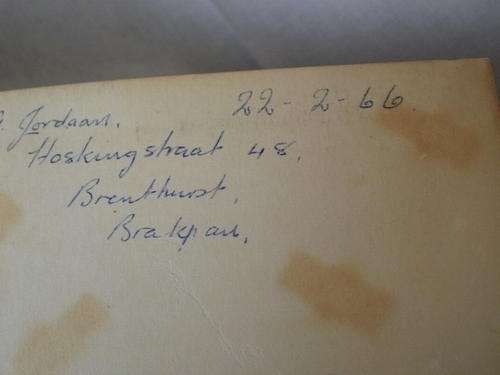 Jordaan. 22-2-66.
Hoskingstraat 48,
Brenthurst,
Brakpan,